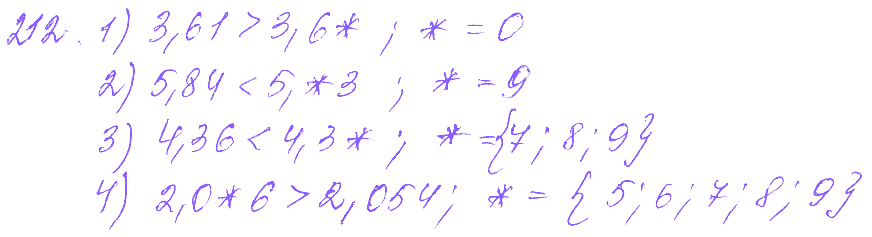 212. 1) 3,61 > 3,6* ; * = 0
2) 5,84 < 5,*3 ; * = 9
3) 4,36 < 4,3* ; * = {7; 8; 9}
4) 2,0*6 > 2,054; * = {5; 6; 7; 8; 9}